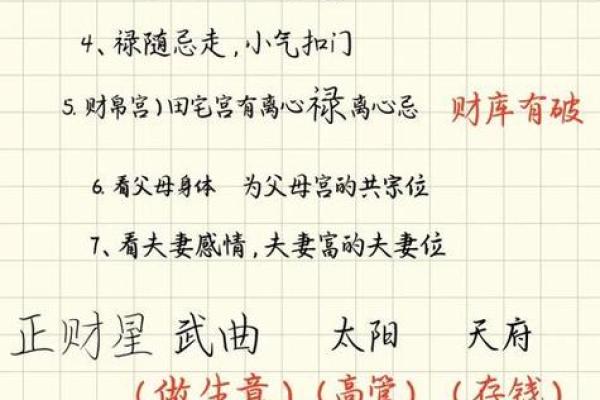 4、禄随忌走,小气扣门
5. 财帛宫)田宅宫有离心禄离心忌 财库有破
6. 看父母身体 为父母宫的共宗位
7、看夫妻感情,夫妻富的夫妻位
正财星 武曲 太阳 天府
(做生意) (高管) (存钱)